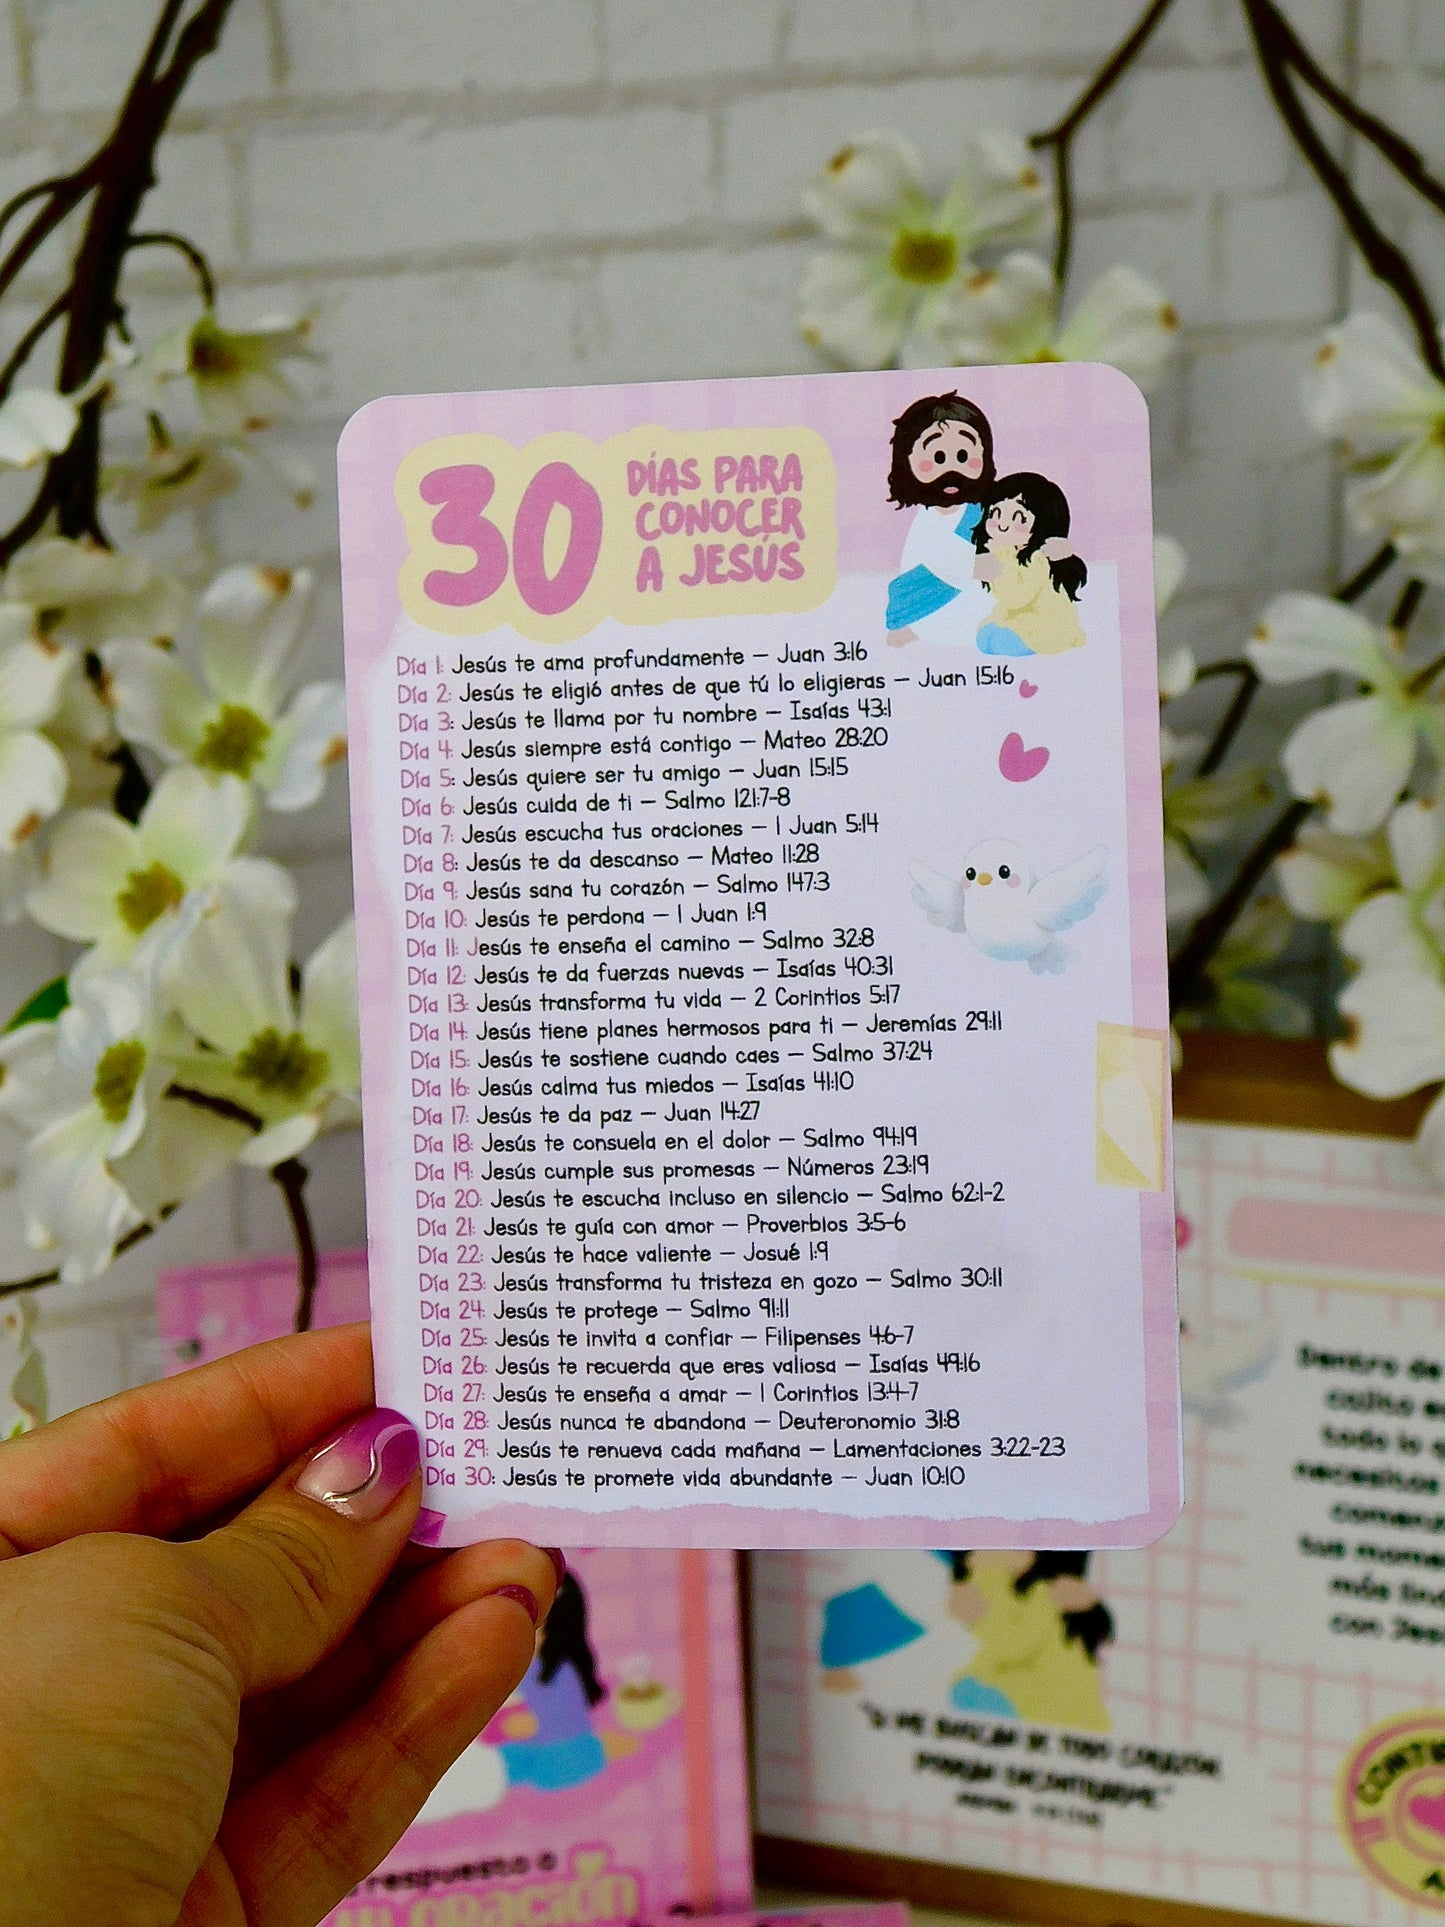 30
DÍAS PARA
CONOCER
A JESÚS
Día 1: Jesús te ama profundamente – Juan 3:16
Día 2: Jesús te eligió antes de que tú lo eligieras – Juan 15:16
Día 3: Jesús te llama por tu nombre – Isaías 43:1
Día 4: Jesús siempre está contigo – Mateo 28:20
Día 5: Jesús quiere ser tu amigo – Juan 15:15
Día 6: Jesús cuida de ti – Salmo 121:7-8
Día 7: Jesús escucha tus oraciones – 1 Juan 5:14
Día 8: Jesús te da descanso – Mateo 11:28
Día 9: Jesús sana tu corazón – Salmo 147:3
Día 10: Jesús te perdona – 1 Juan 1:9
Día 11: Jesús te enseña el camino – Salmo 32:8
Día 12: Jesús te da fuerzas nuevas – Isaías 40:31
Día 13: Jesús transforma tu vida – 2 Corintios 5:17
Día 14: Jesús tiene planes hermosos para ti – Jeremías 29:11
Día 15: Jesús te sostiene cuando caes – Salmo 37:24
Día 16: Jesús calma tus miedos – Isaías 41:10
Día 17: Jesús te da paz – Juan 14:27
Día 18: Jesús te consuela en el dolor – Salmo 94:19
Día 19: Jesús cumple sus promesas – Números 23:19
Día 20: Jesús te escucha incluso en silencio – Salmo 62:1-2
Día 21: Jesús te guía con amor – Proverbios 3:5-6
Día 22: Jesús te hace valiente – Josué 1:9
Día 23: Jesús transforma tu tristeza en gozo – Salmo 30:11
Día 24: Jesús te protege – Salmo 91:11
Día 25: Jesús te invita a confiar – Filipenses 4:6-7
Día 26: Jesús te recuerda que eres valiosa – Isaías 49:16
Día 27: Jesús te enseña a amar – 1 Corintios 13:4-7
Día 28: Jesús nunca te abandona – Deuteronomio 31:8
Día 29: Jesús te renueva cada mañana – Lamentaciones 3:22-23
Día 30: Jesús te promete vida abundante – Juan 10:10
Dentro de
cajita
todo lo
necesitas
tus
más
con
ME BUSCAN DE TODO CORAZÓN,
respuesta a
oración